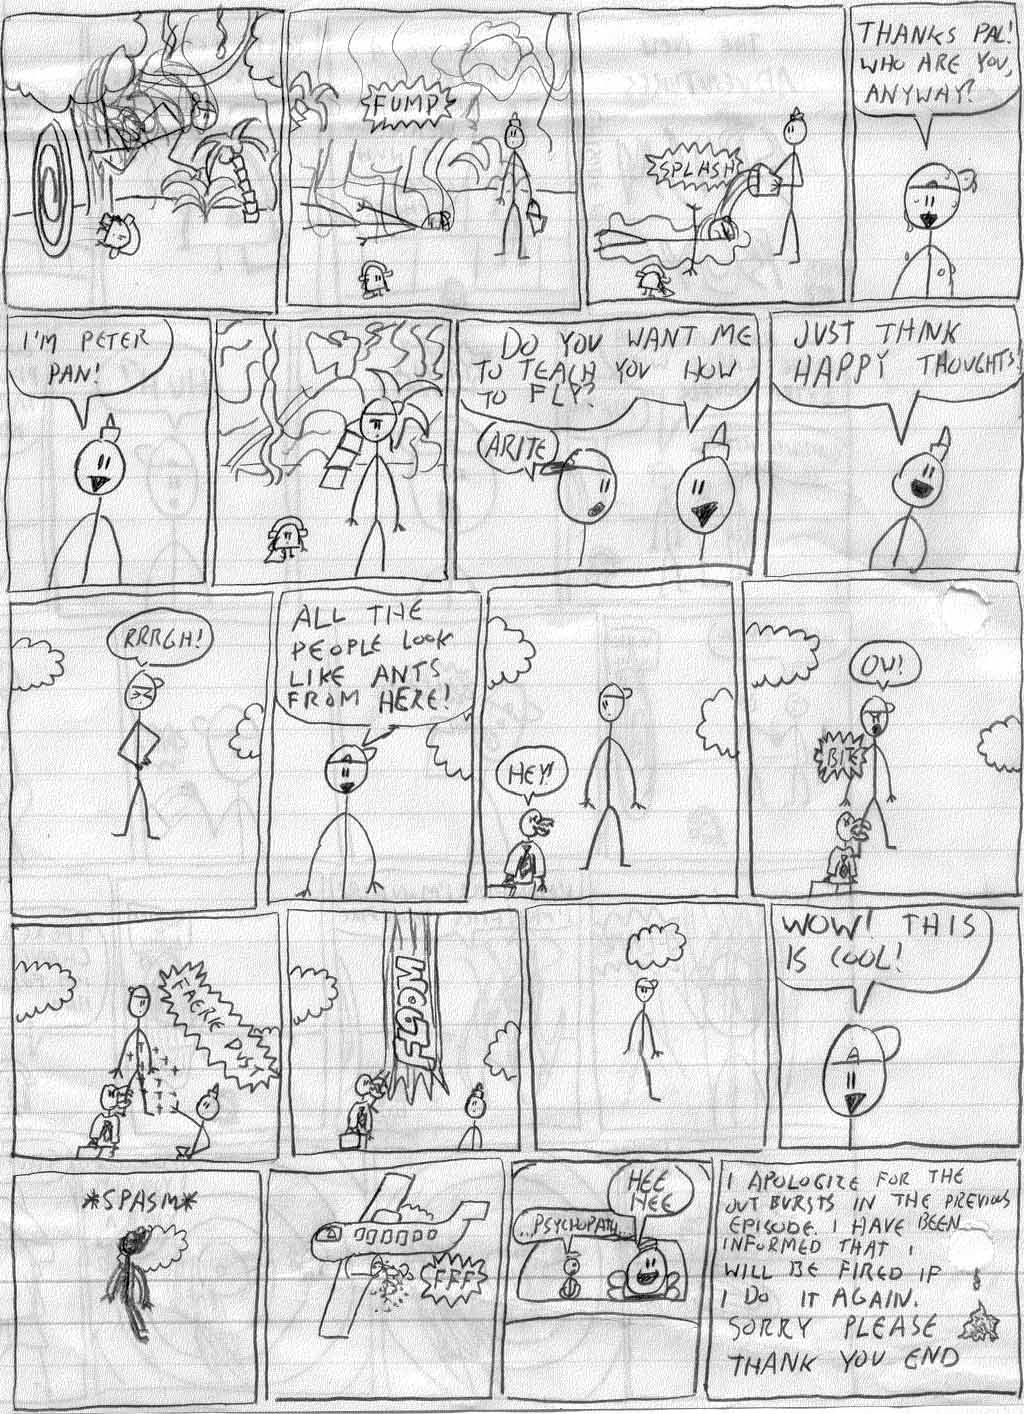 FUMP
SPLASH
THANKS PAL!
WHO ARE YOU,
ANYWAY?
I'M PETER
PAN!
DO YOU WANT ME
TO TEACH YOU HOW
TO FLY?
ARITE
JUST THINK
HAPPY THOUGHTS!
RRRGH!
ALL THE
PEOPLE LOOK
LIKE ANTS
FROM HERE!
HEY!
OW!
BITE
FAERIE DUST
FFOOM
WOW! THIS
IS COOL!
*SPASM*
FFF
...PSYCHOPATH...
HEE
HEE
I APOLOGIZE FOR THE
OUTBURSTS IN THE PREVIOUS
EPISODE. I HAVE BEEN
INFORMED THAT I
WILL BE FIRED IF
I DO IT AGAIN.
SORRY PLEASE
THANK YOU END